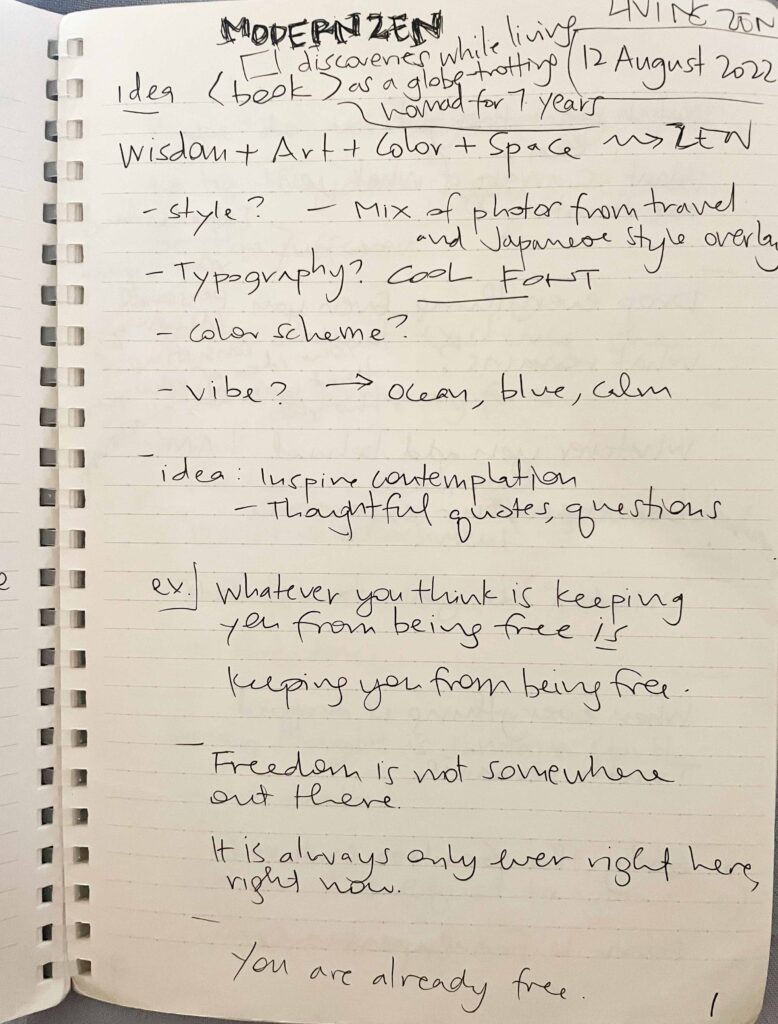 LIVING ZEN
MODERN ZEN
discoveries while living
as a globe-trotting
nomad for 7 years
12 August 2022
idea (book)
Wisdom + Art + Color + Space ⟿ ZEN
- style? - Mix of photos from travel
and Japanese style overlay
- Typography? COOL FONT
- color scheme?
- vibe? → ocean, blue, calm
- idea: Inspire contemplation
- Thoughtful quotes, questions
ex.] Whatever you think is keeping
you from being free is
keeping you from being free.
-
Freedom is not somewhere
out there.
It is always only ever right here,
right now.
-
You are already free.
1